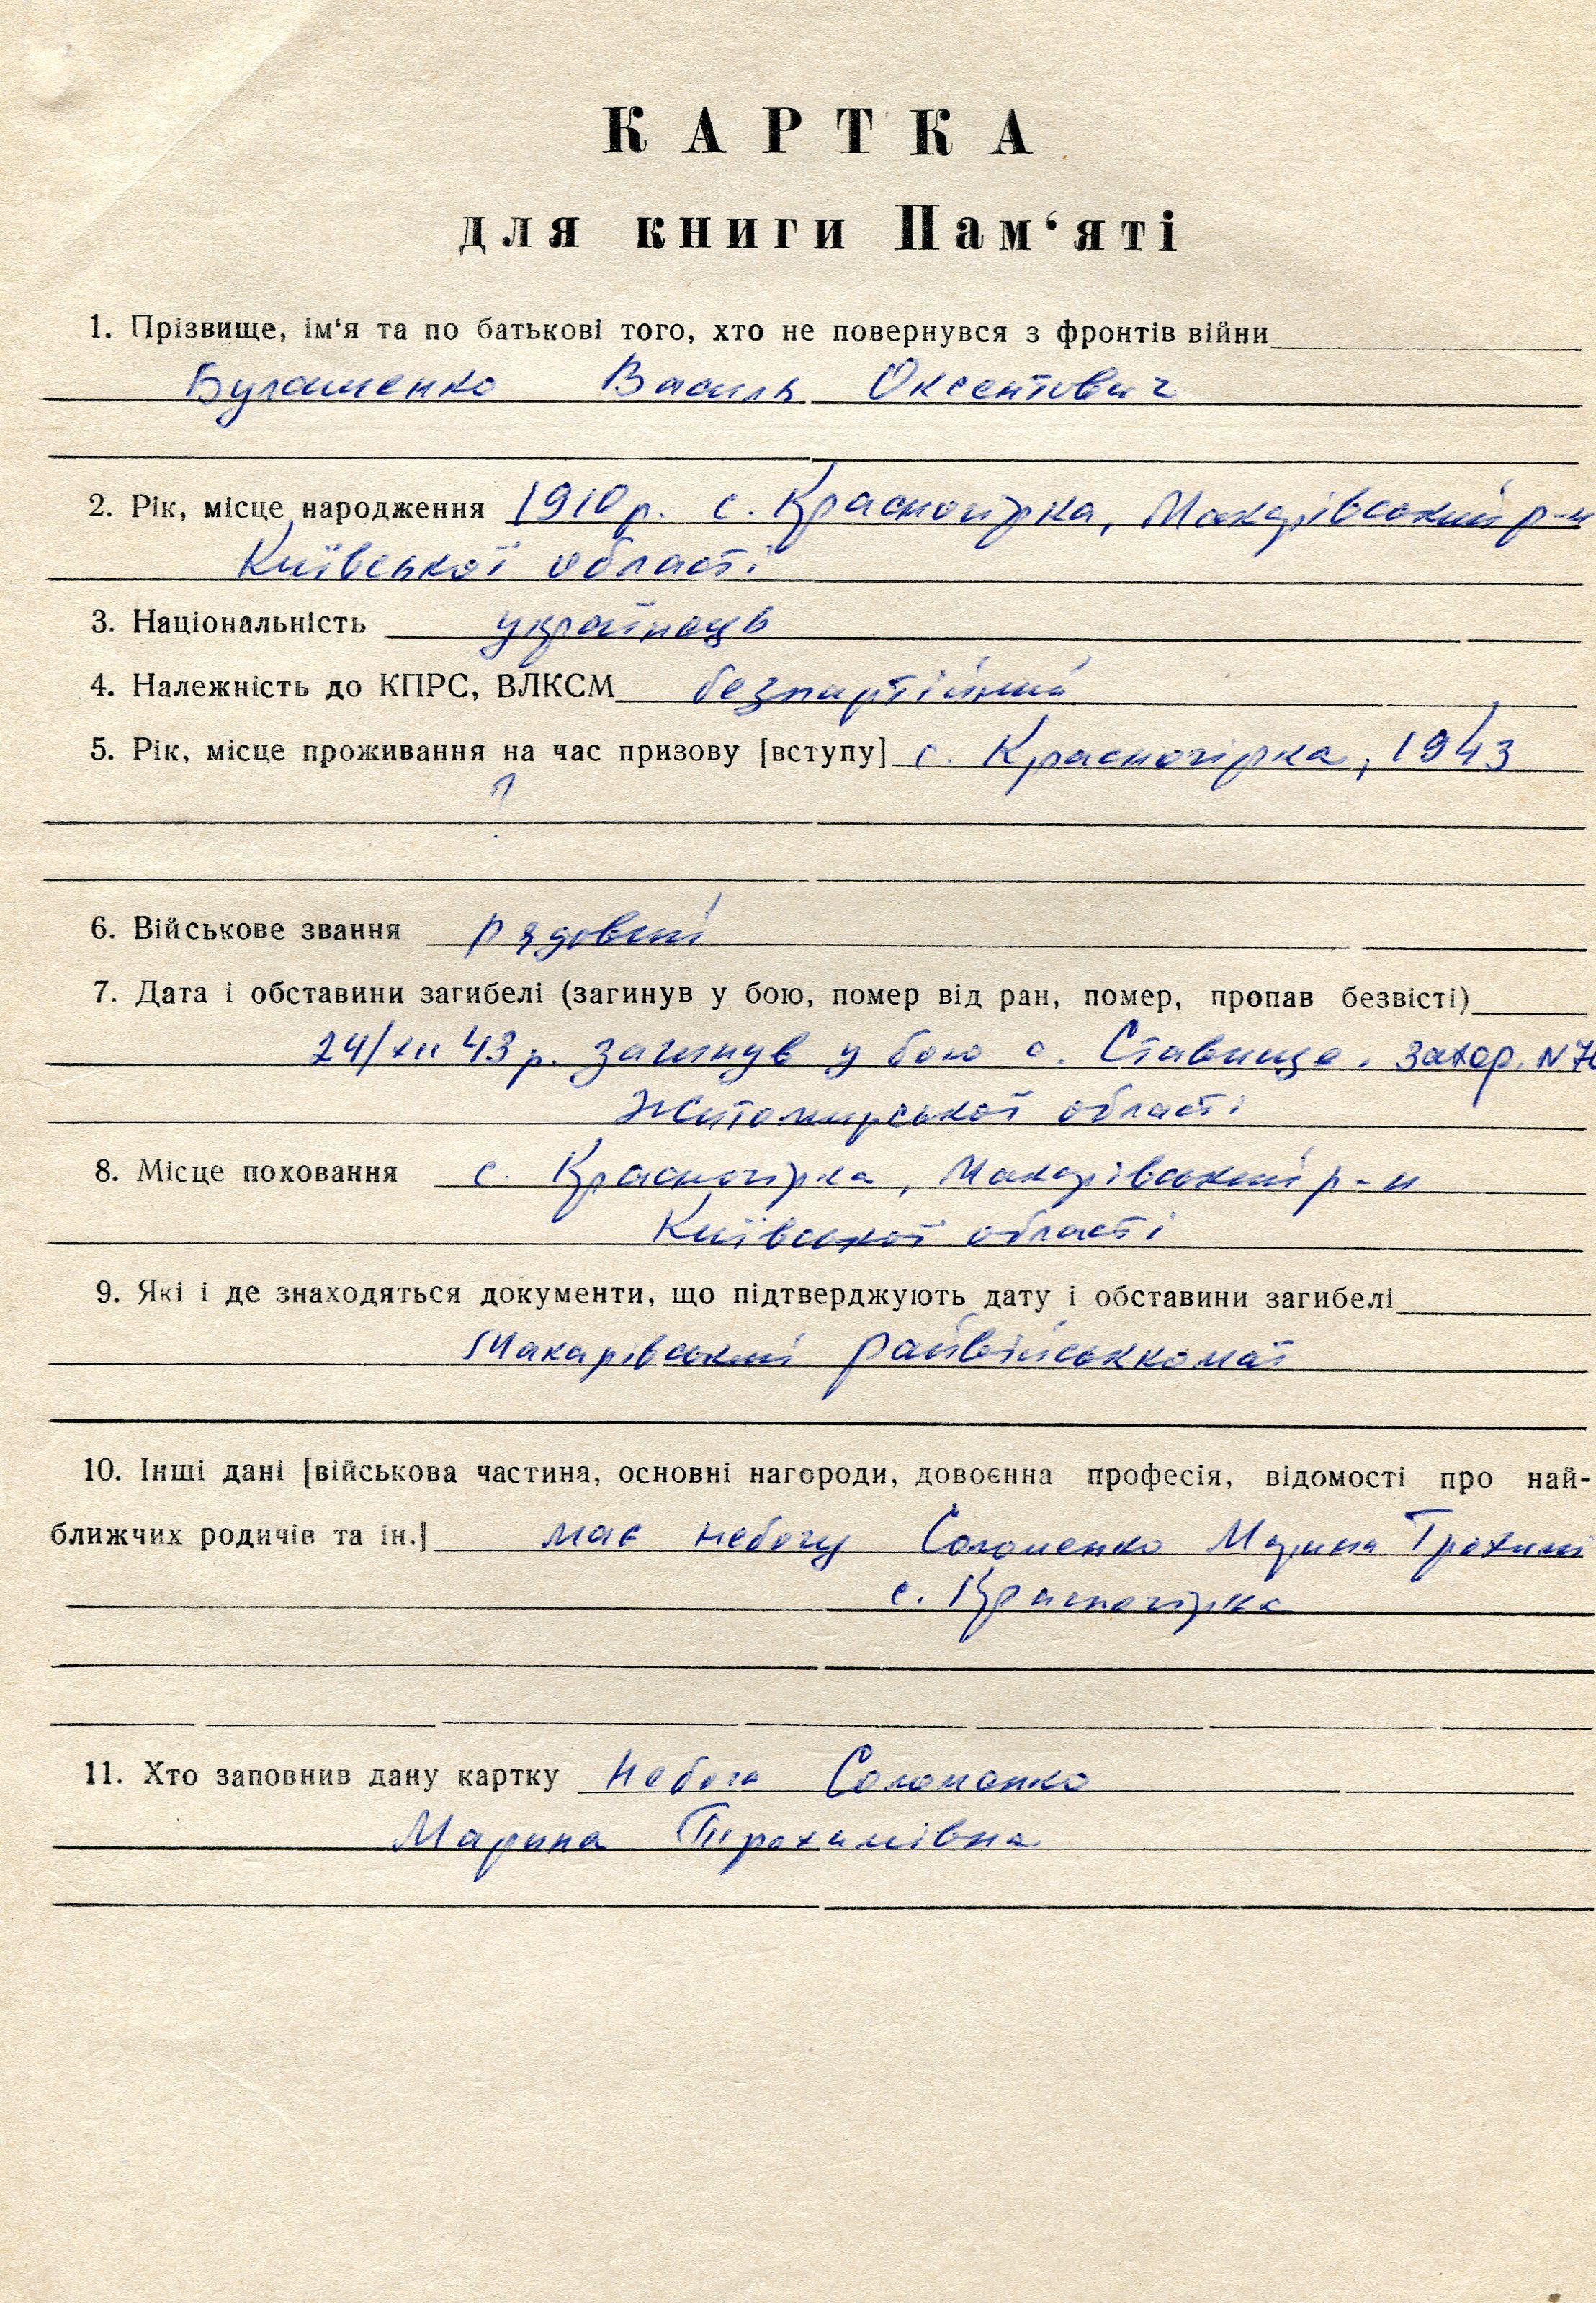 КАРТКА
для книги Пам‘яті
1. Прізвище, ім‘я та по батькові того, хто не повернувся з фронтів війни
Василь Оксентович
2. Рік, місце народження 1910 р. с. Красногірка, Макарівський р-н
Київської області
3. Національність українець
4. Належність до КПРС, ВЛКСМ безпартійний
5. Рік, місце проживання на час призову [вступу] с. Красногірка, 1943
?
6. Військове звання рядовий
7. Дата і обставини загибелі (загинув у бою, помер від ран, помер, пропав безвісті)
24/XII 43 р. загинув у бою с. Ставище. Захор. N
Житомирської області
8. Місце поховання с. Красногірка, Макарівський р-н
Київської області
9. Які і де знаходяться документи, що підтверджують дату і обставини загибелі
Макарівський райвійськкомат
10. Інші дані [військова частина, основні нагороди, довоєнна професія, відомості про най-
ближчих родичів та ін.] має небогу Соломенко Марина
с. Красногірка
11. Хто заповнив дану картку Небога Соломенко
Марина Трохимівна